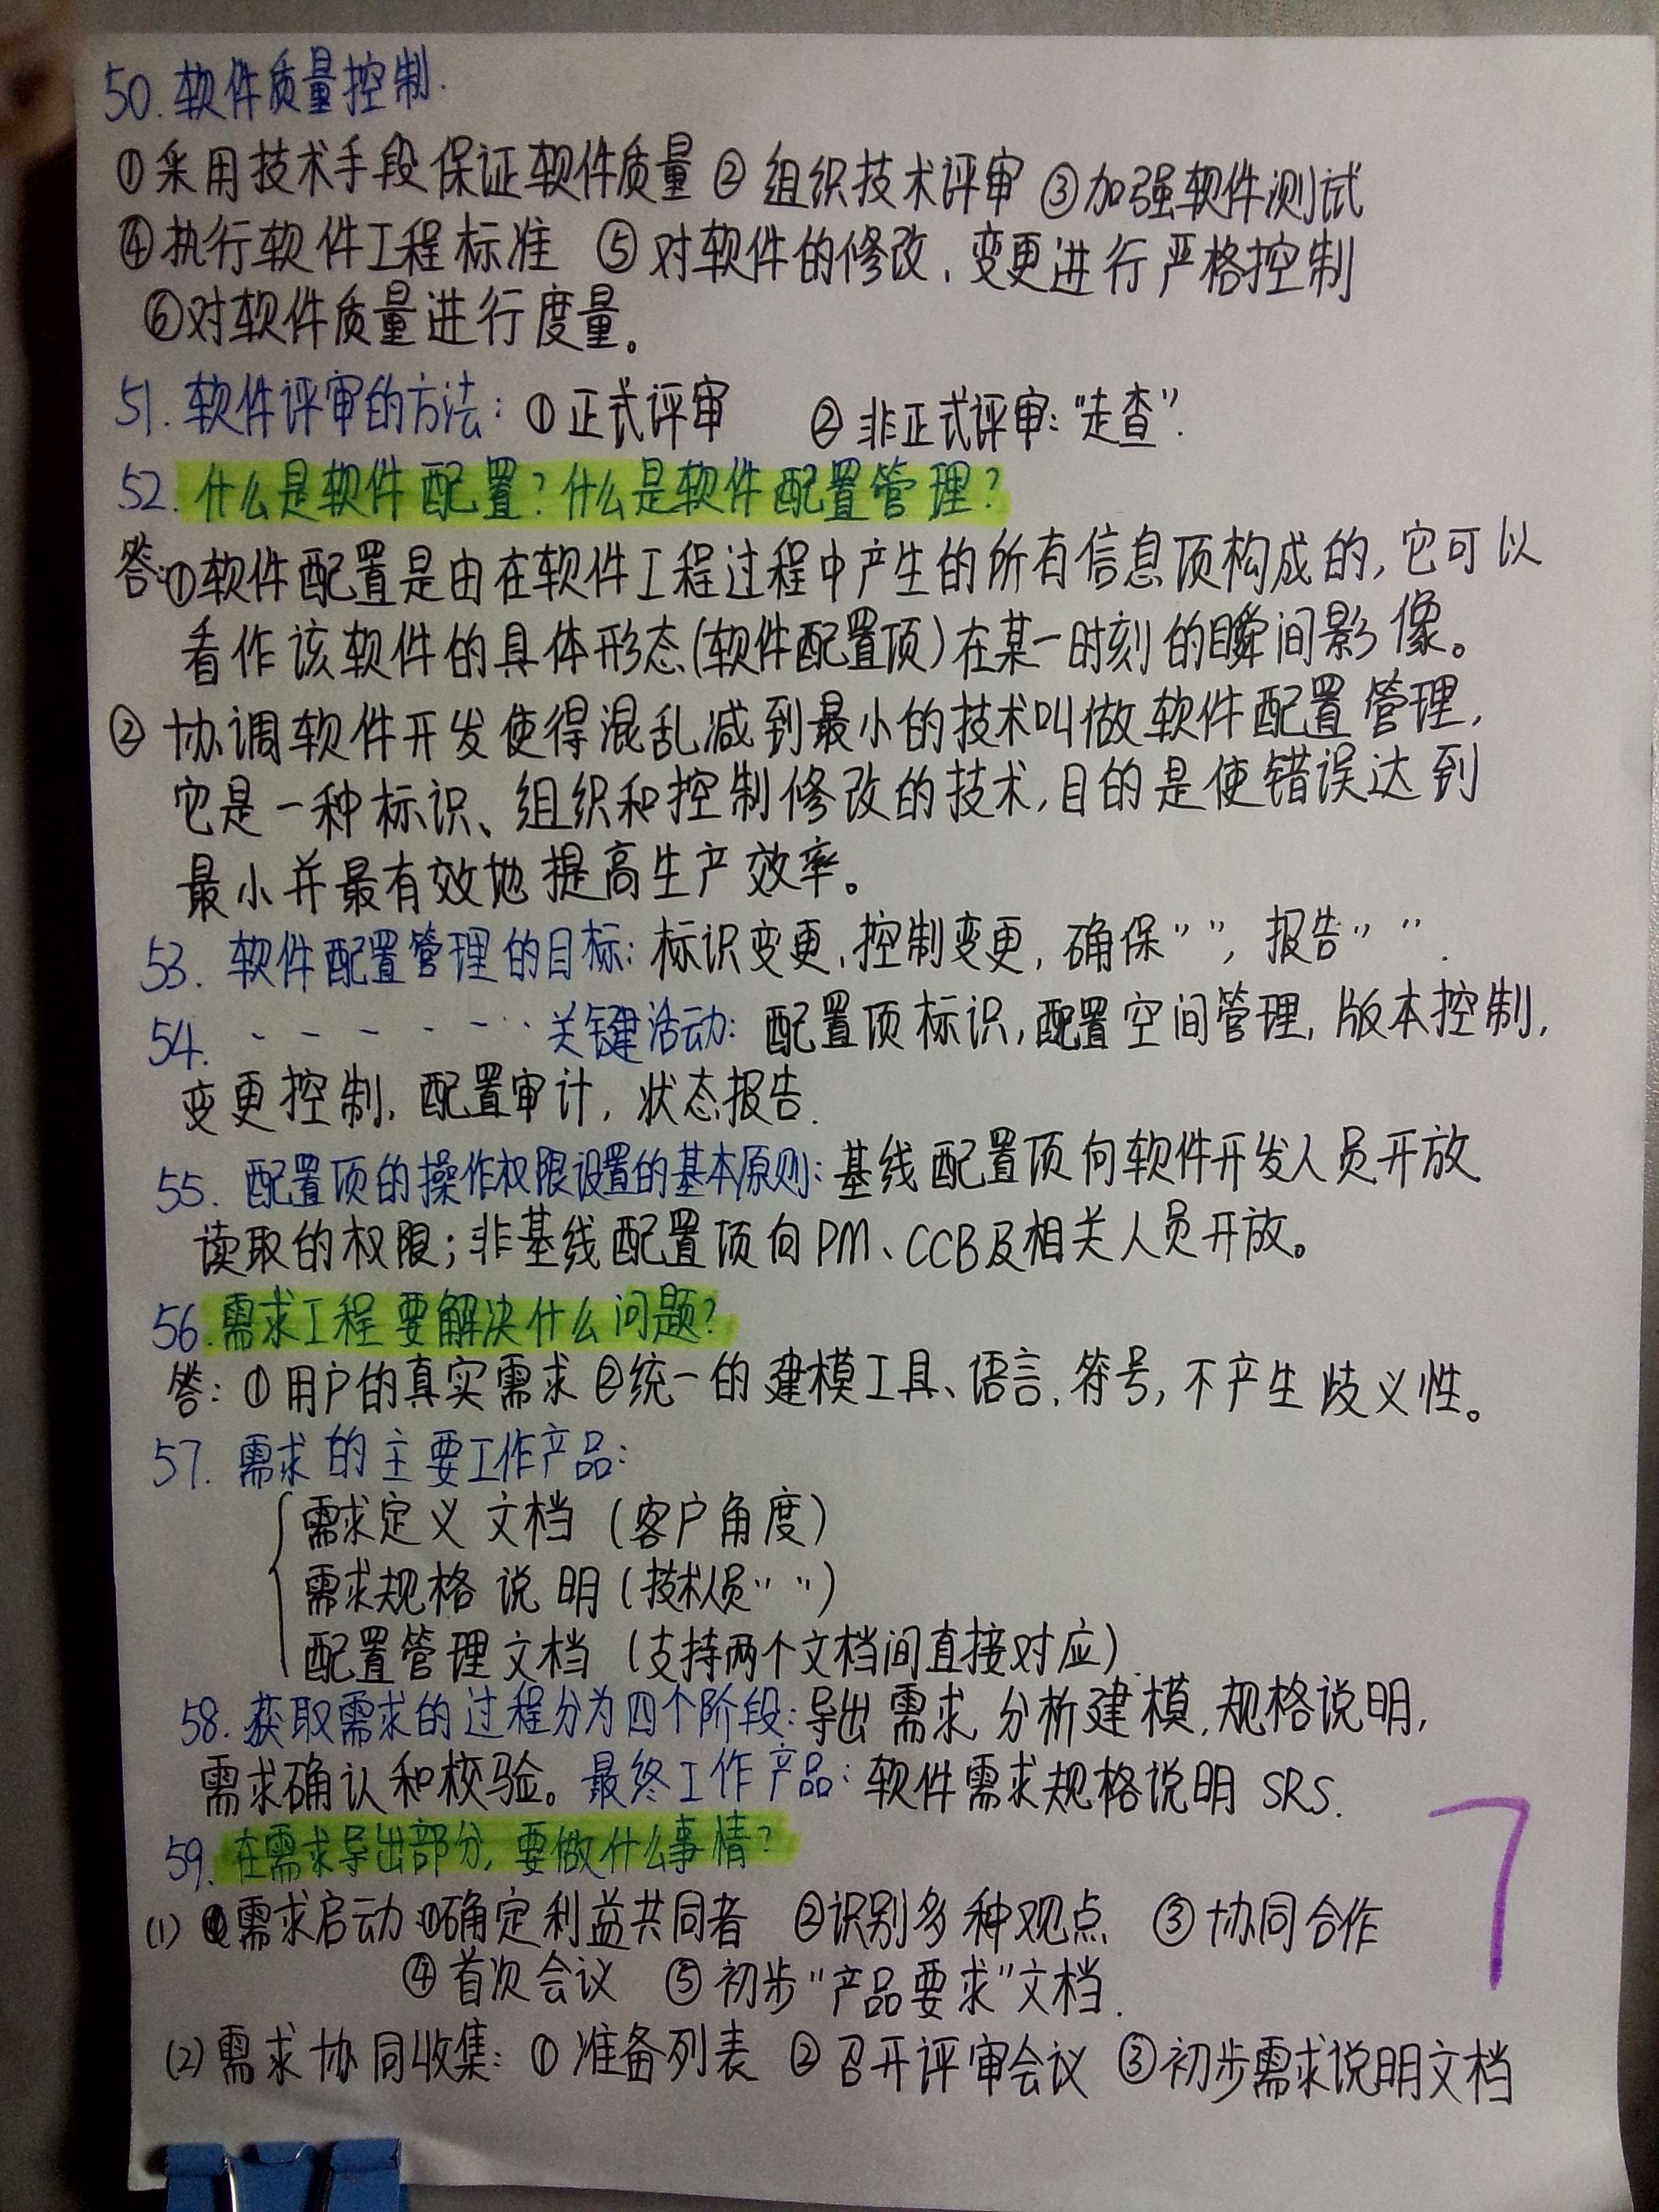 50. 软件质量控制.
①采用技术手段保证软件质量 ② 组织技术评审 ③加强软件测试
④执行软件工程标准 ⑤对软件的修改、变更进行严格控制
⑥对软件质量进行度量。
51. 软件评审的方法: ①正式评审 ②非正式评审:“走查”.
52. 什么是软件配置?什么是软件配置管理?
答:①软件配置是由在软件工程过程中产生的所有信息项构成的,它可以
看作该软件的具体形态(软件配置项)在某一时刻的瞬间影像。
② 协调软件开发使得混乱减到最小的技术叫做软件配置管理,
它是一种标识、组织和控制修改的技术,目的是使错误达到
最小并最有效地提高生产效率。
53. 软件配置管理的目标: 标识变更、控制变更, 确保” ”, 报告” ”.
54. - - - - - - · · 关键活动: 配置项标识,配置空间管理, 版本控制,
变更控制, 配置审计, 状态报告.
55. 配置项的操作权限设置的基本原则: 基线配置项向软件开发人员开放
读取的权限; 非基线配置项向PM、CCB及相关人员开放。
56. 需求工程要解决什么问题?
答: ①用户的真实需求 ②统一的建模工具、语言、符号, 不产生歧义性。
57. 需求的主要工作产品:
需求定义文档 (客户角度)
需求规格说明 (技术人员“ ”)
配置管理文档 (支持两个文档间直接对应).
58. 获取需求的过程分为四个阶段: 导出需求、分析建模、规格说明,
需求确认和校验。最终工作产品: 软件需求规格说明 SRS.
59. 在需求导出部分, 要做什么事情?
(1) 需求启动:①确定利益共同者 ②识别多种观点 ③协同合作
④首次会议 ⑤初步“产品要求”文档.
(2) 需求协同收集: ①准备列表 ②召开评审会议 ③初步需求说明文档
7